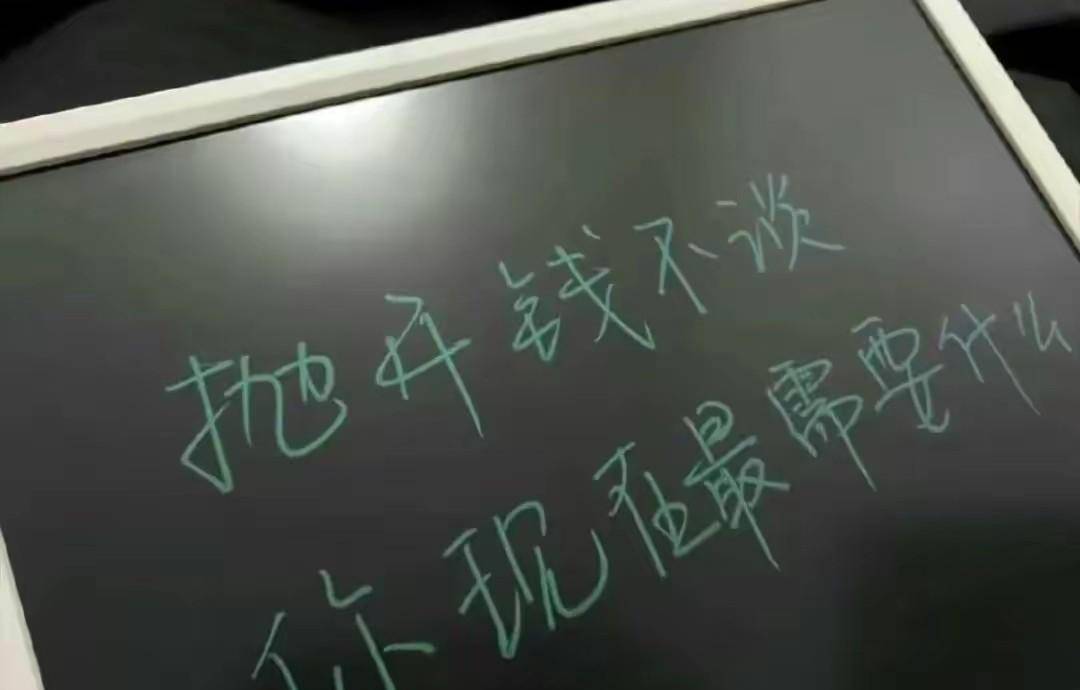 抛开钱不谈
你现在最需要什么